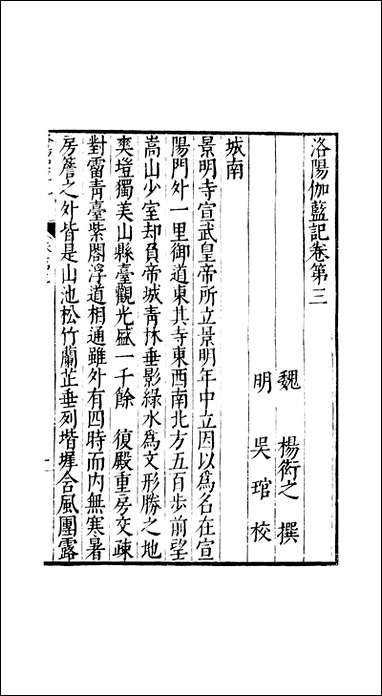 洛陽伽藍記卷第三
魏 楊衒之 撰
明 吳琯 校
城南
景明寺宣武皇帝所立景明年中立因以爲名在宣
陽門外一里御道東其寺東西南北方五百步前望
嵩山少室却負帝城青林垂影綠水爲文形勝之地
爽塏獨美山縣臺觀光盛一千餘 復殿重房交疎
對霤青臺紫閣浮道相通雖外有四時而內無寒暑
房簷之外皆是山池松竹蘭芷垂列堦墀含風團露